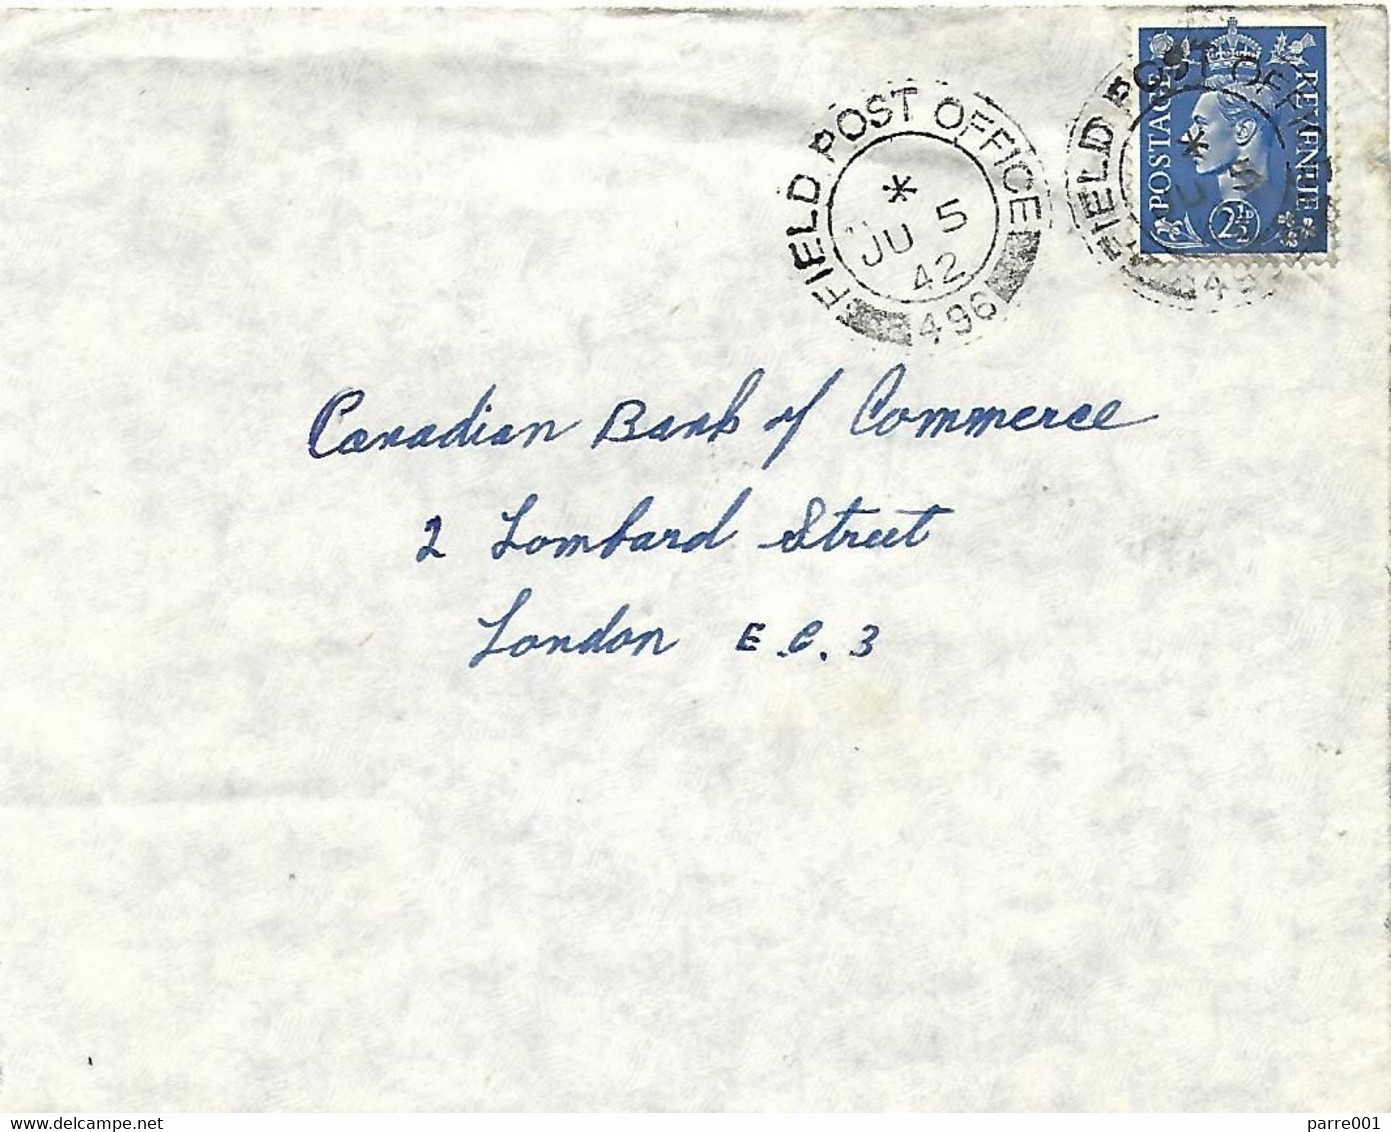 FIELD POST OFFICE
*
JU 5
42
496
FIELD POST OFFICE
*
POSTAGE
REVENUE
2½D
Canadian Bank of Commerce
2 Lombard Street
London E.C.3
parre001